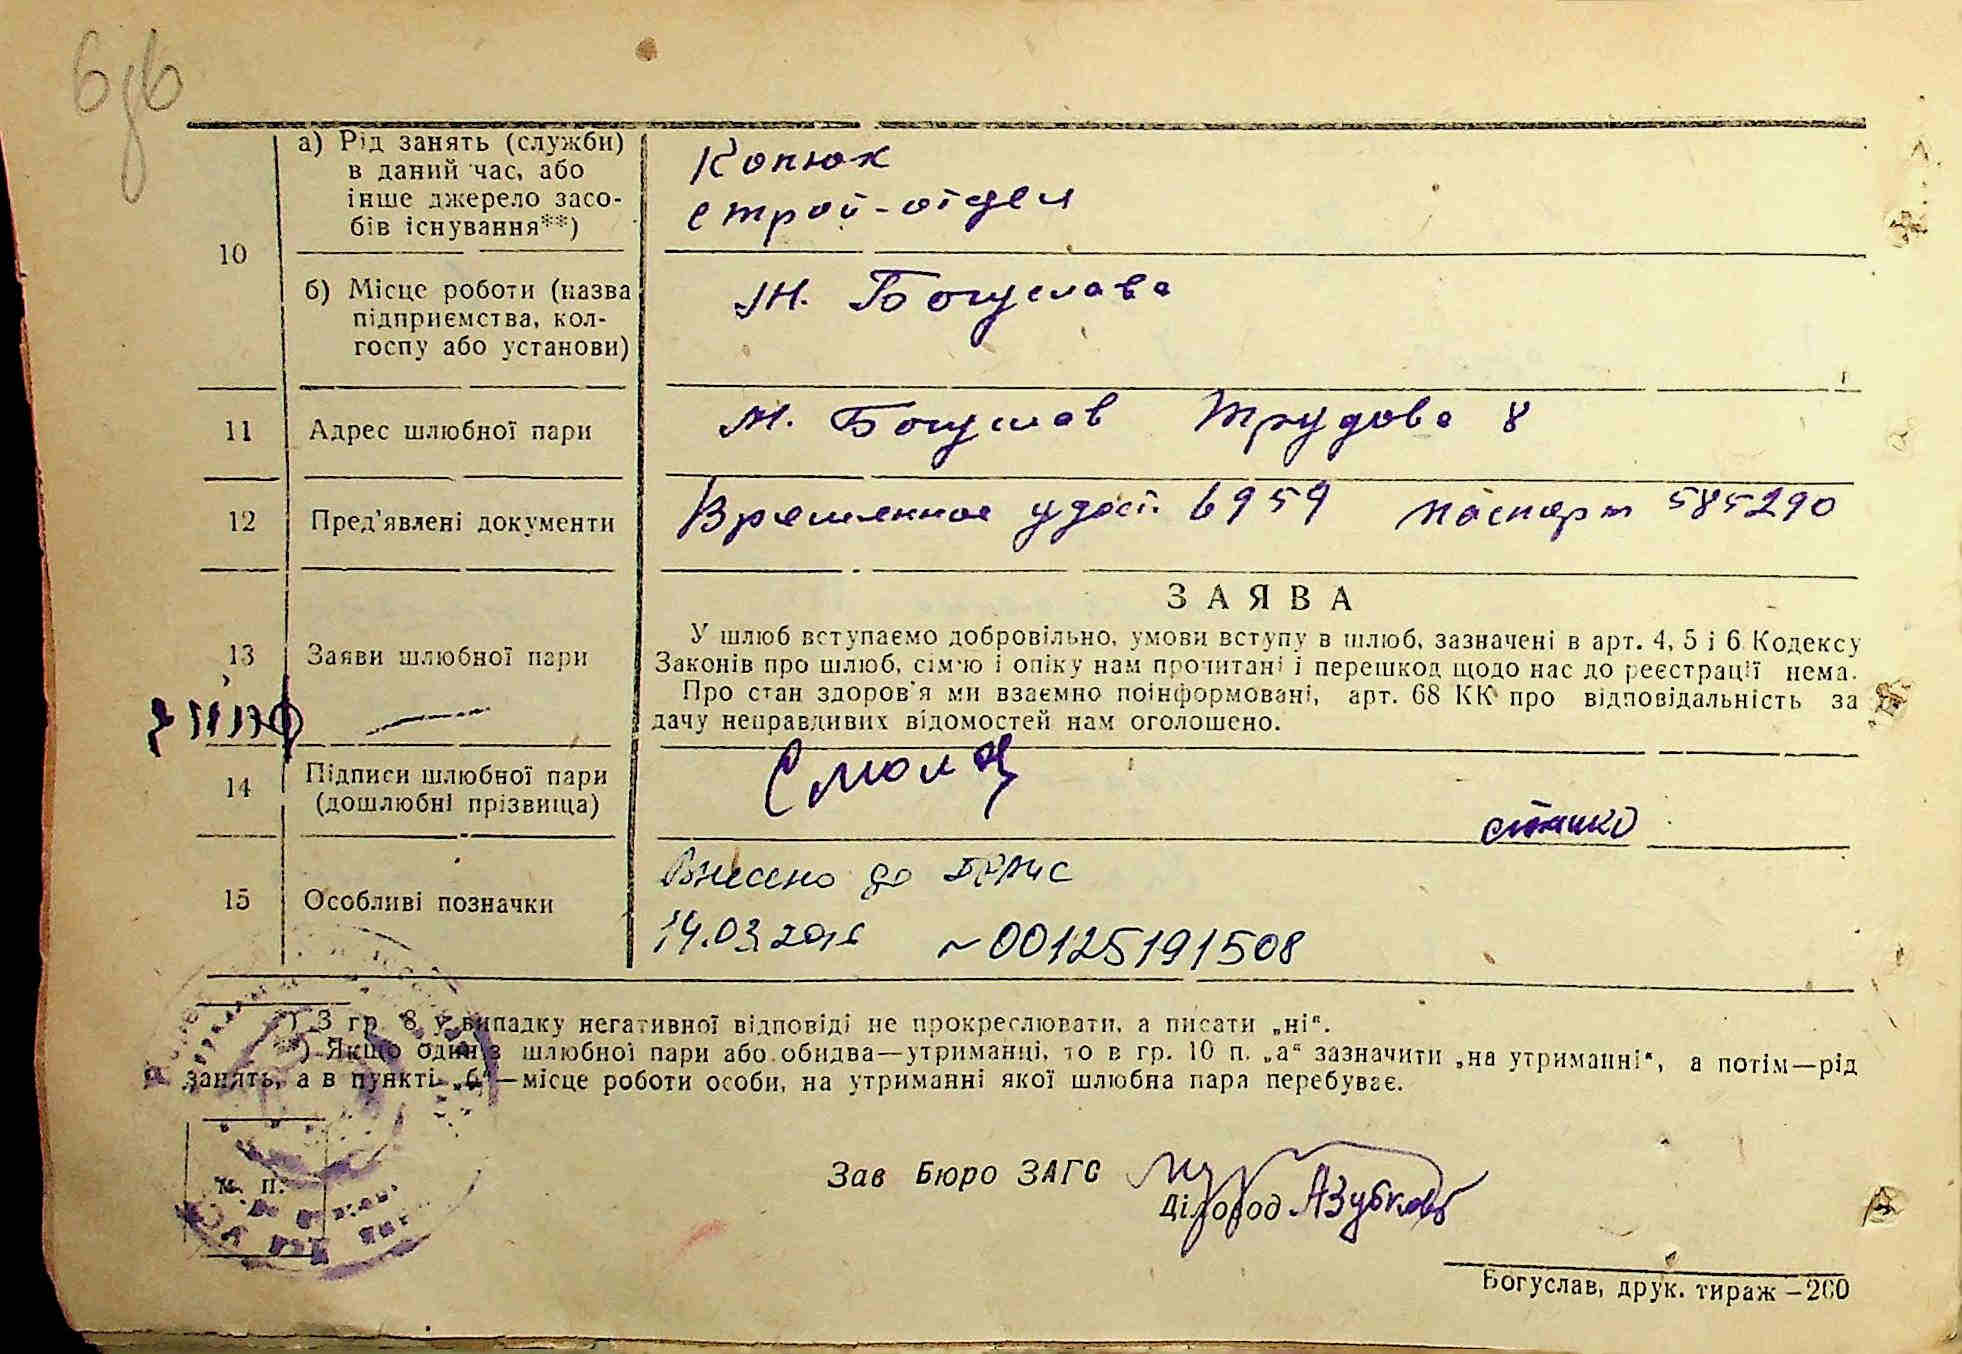 а) Рід занять (служби)
в даний час, або
інше джерело засо-
бів існування**)
Конюх
строй-отдел
10
б) Місце роботи (назва
підприємства, кол-
госпу або установи)
м. Богуслава
11 Адрес шлюбної пари м. Богуслав Трудова 8
12 Пред'явлені документи Временное удост. 6959 паспорт 585290
ЗАЯВА
13 Заяви шлюбної пари
У шлюб вступаємо добровільно, умови вступу в шлюб, зазначені в арт. 4, 5 і 6 Кодексу
Законів про шлюб, сім'ю і опіку нам прочитані і перешкод щодо нас до реєстрації нема.
Про стан здоров'я ми взаємно поінформовані, арт. 68 КК про відповідальність за
дачу неправдивих відомостей нам оголошено.
14 Підписи шлюбної пари
(дошлюбні прізвища)
15 Особливі позначки
Внесено до ДРАЦС
14.03.2016 № 00125191508
*) З гр. 8 у випадку негативної відповіді не прокреслювати, а писати „ні“.
**) Якщо один з шлюбної пари або обидва—утриманці, то в гр. 10 п. „а“ зазначити „на утриманні“, а потім—рід
занять, а в пункті „б“—місце роботи особи, на утриманні якої шлюбна пара перебуває.
М. П.
Зав Бюро ЗАГС
Діловод
Богуслав, друк. тираж —200